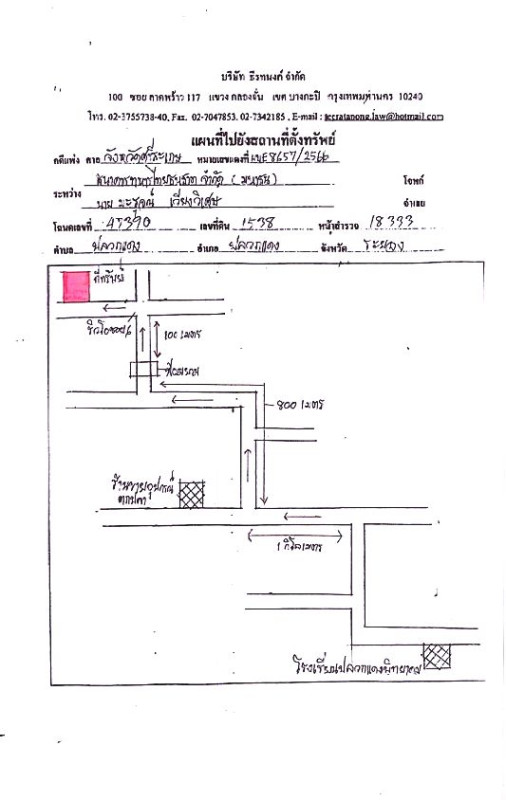 บริษัท ธีรทนงค์ จำกัด
100 ซอย ลาดพร้าว 117 แขวง คลองจั่น เขต บางกะปิ กรุงเทพมหานคร 10240
โทร. 02-3755738-40, Fax. 02-7047853, 02-7342185 , E-mail : teeratanong.law@hotmail.com
แผนที่ไปยังสถานที่ตั้งทรัพย์
คดีแพ่ง ศาล จังหวัดศรีสะเกษ หมายเลขแดงที่ ผบE8657/2566
ธนาคารทหารไทยธนชาต จำกัด (มหาชน) โจทก์
ระหว่าง
นาย เวียงวิเศษ จำเลย
โฉนดเลขที่ 45390 เลขที่ดิน 1538 หน้าสำรวจ 18333
ตำบล ปลวกแดง อำเภอ ปลวกแดง จังหวัด ระยอง
ที่ทรัพย์
100 เมตร
800 เมตร
ร้านขายอุปกรณ์
1 กิโลเมตร
โรงเรียนปลวกแดงพิทยาคม